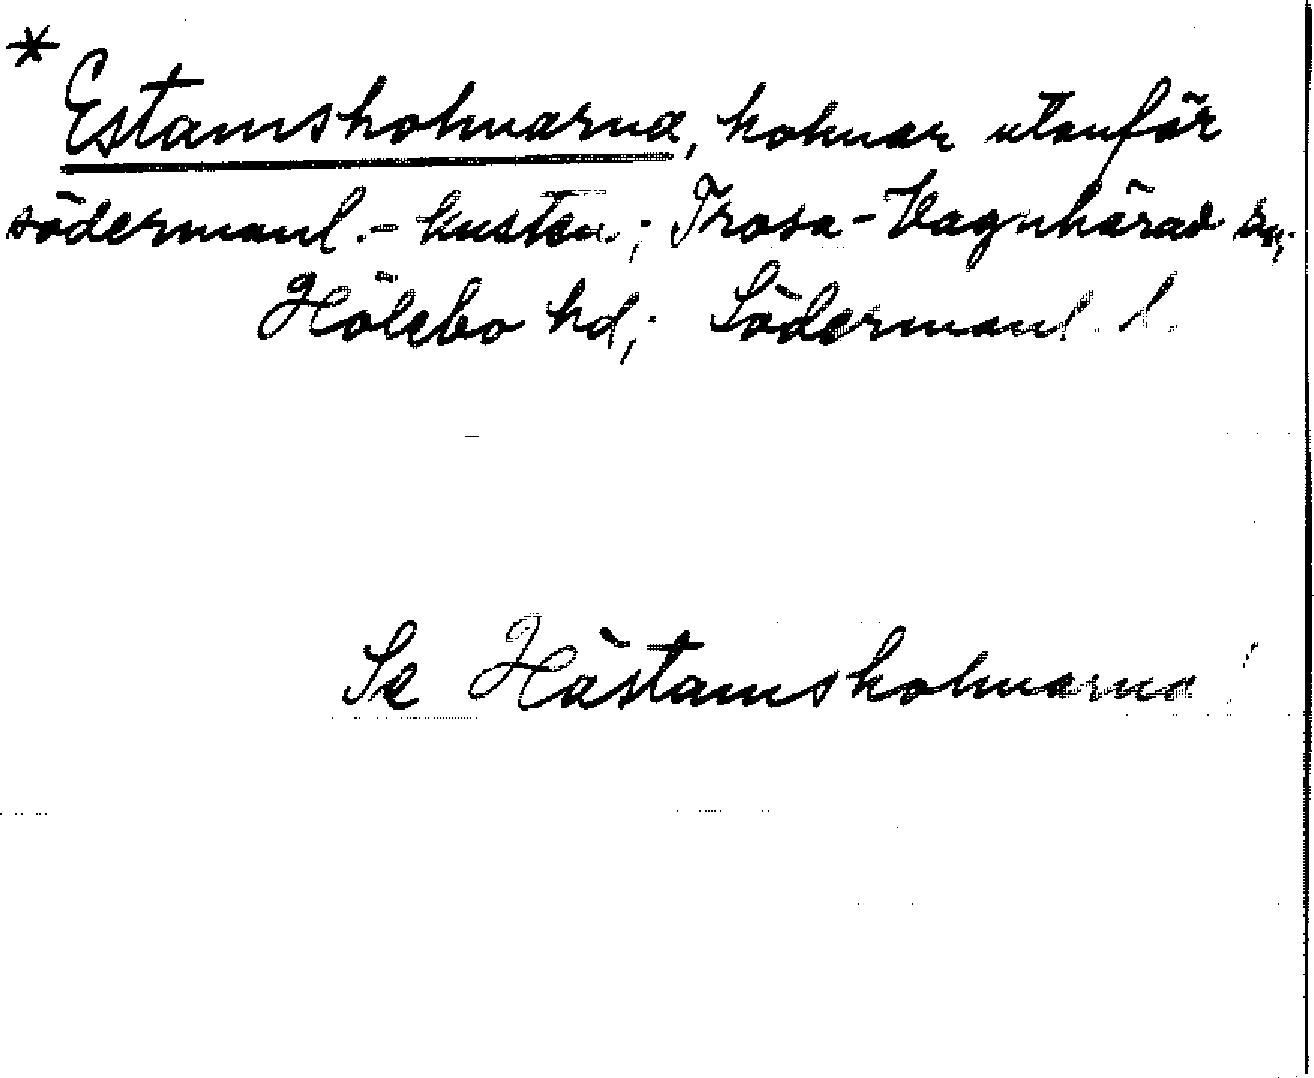 * Estamsholmarna, holmar utanför
södermanl.-kusten; Trosa-Vagnhärad sn;
Hölebo hd; Södermanl. l.
Se Hästamsholmarna!